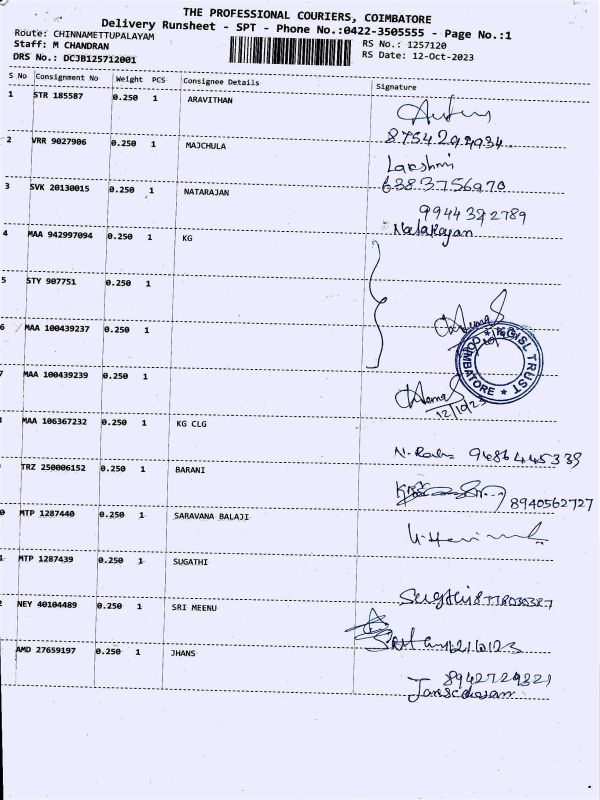 THE PROFESSIONAL COURIERS, COIMBATORE
Delivery Runsheet - SPT - Phone No.:0422-3505555 - Page No.:1
Route: CHINNAMETTUPALAYAM
RS No.: 1257120
Staff: M CHANDRAN
RS Date: 12-Oct-2023
DRS No.: DCJB125712001
S No Consignment No Weight PCS Consignee Details Signature
1 STR 185587 0.250 1 ARAVITHAN
8754294934
2 VRR 9027906 0.250 1 MAJCHULA
Lakshmi
6383756970
3 SVK 20130015 0.250 1 NATARAJAN
9944382789
Natarajan
4 MAA 942997094 0.250 1 KG
5 STY 907751 0.250 1
6 MAA 100439237 0.250 1
KGISL TRUST
COIMBATORE
MAA 100439239 0.250 1
12/10/23
MAA 106367232 0.250 1 KG CLG
9486445339
TRZ 250006152 0.250 1 BARANI
8940562727
MTP 1287440 0.250 1 SARAVANA BALAJI
MTP 1287439 0.250 1 SUGATHI
NEY 40104489 0.250 1 SRI MEENU
AMD 27659197 0.250 1 JHANS
8942729321